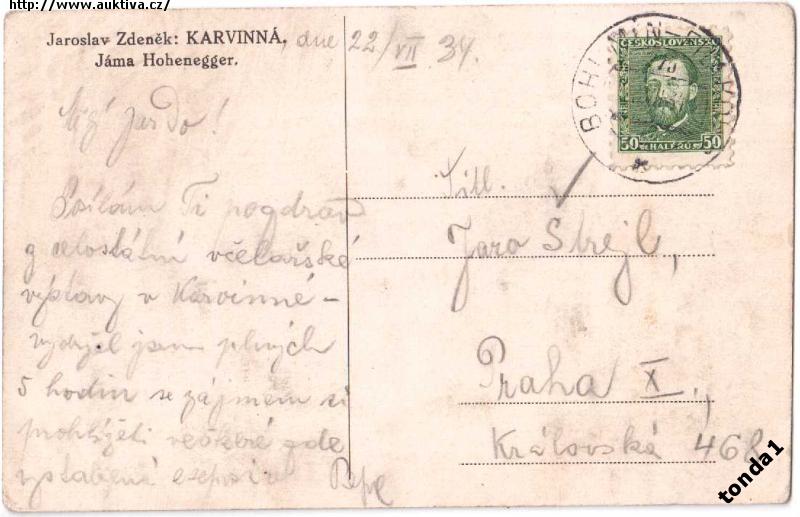 http://www.auktiva.cz/
Jaroslav Zdeněk: KARVINNÁ, dne 22/VII 34.
Jáma Hohenegger.
BOHUMÍN
ČESKOSLOVENSKO
50 HALÉŘŮ 50
Můj Jardo!
Posílám Ti pozdrav
z celostátní včelařské
výstavy v Karvinné –
vydržel jsem plných
5 hodin se zájmem si
prohlížeti veškeré zde
vystavené
Pepa
Ctil.
Jaro Strejl,
Praha X.,
Královská 468
tonda1